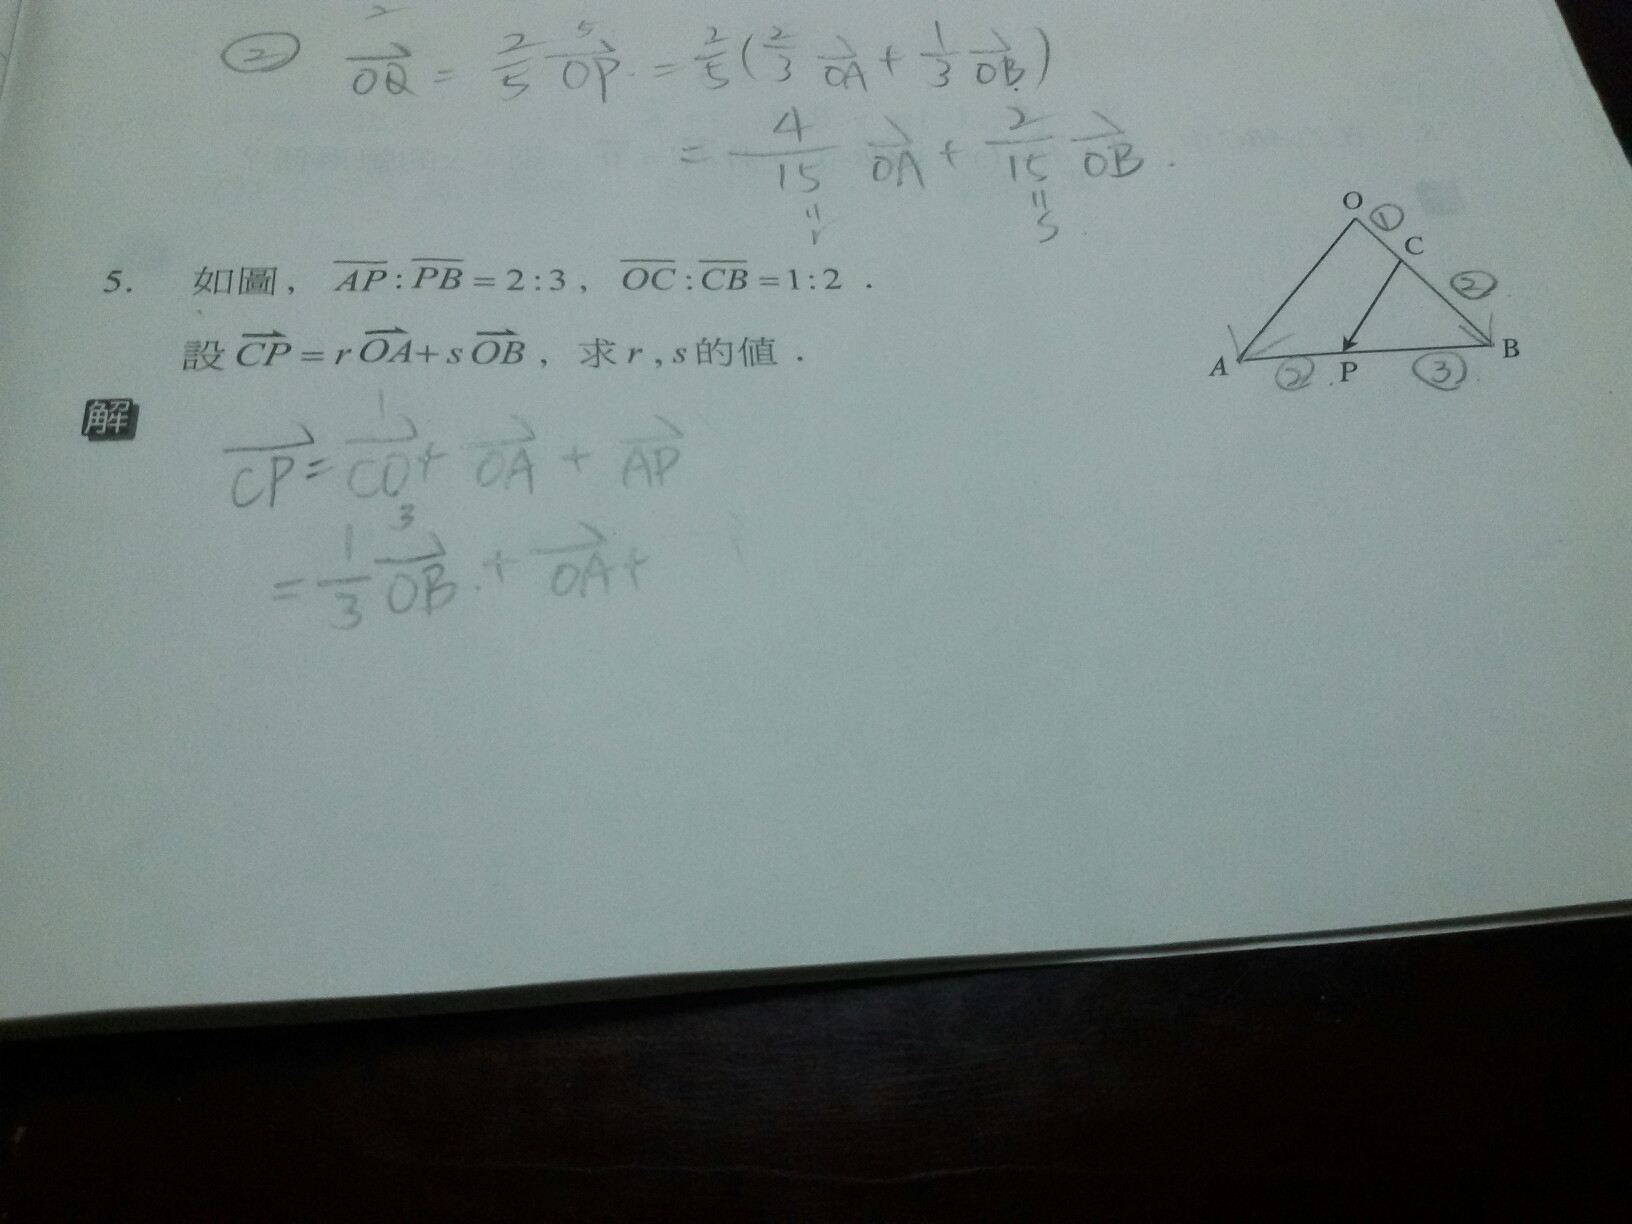 2
② OQ = 2/5 OP = 2/5 ( 2/3 OA + 1/3 OB )
5
= 4/15 OA + 2/15 OB .
= r = S
5. 如圖， AP : PB = 2 : 3 ， OC : CB = 1 : 2 ．
設 CP = r OA + s OB ， 求 r , s 的值 ．
O ①
C
②
A ② P ③ B
解
1
CP = CO + OA + AP
3
= 1/3 OB + OA +